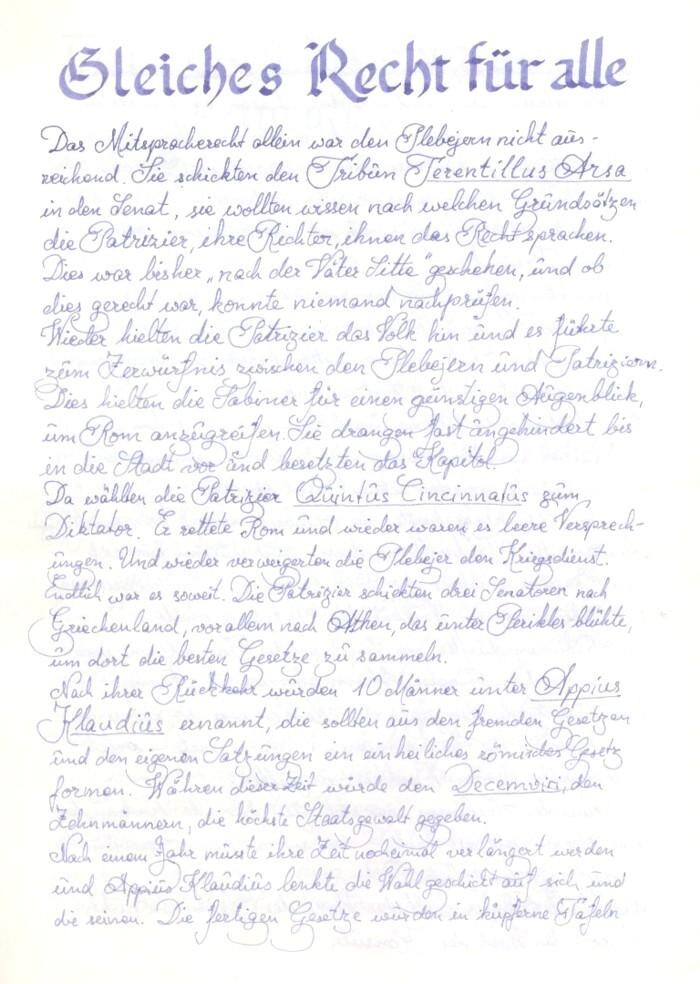 Gleiches Recht für alle
Das Mitspracherecht allein war den Plebejern nicht aus-
reichend. Sie schickten den Tribun Terentillus Arsa
in den Senat, sie wollten wissen nach welchen Grundsätzen
die Patrizier, ihre Richter, ihnen das Recht sprachen.
Dies war bisher „nach der Väter Sitte" geschehen, und ob
dies gerecht war, konnte niemand nachprüfen.
Wieder hielten die Patrizier das Volk hin und es führte
zum Zerwürfnis zwischen den Plebejern und Patriziern.
Dies hielten die Sabiner für einen günstigen Augenblick,
um Rom anzugreifen. Sie drangen fast ungehindert bis
in die Stadt vor und besetzten das Kapitol.
Da wählten die Patrizier Quintus Cincinnatus zum
Diktator. Er rettete Rom und wieder waren es leere Versprech-
ungen. Und wieder verweigerten die Plebejer den Kriegsdienst.
Endlich war es soweit. Die Patrizier schickten drei Senatoren nach
Griechenland, vor allem nach Athen, das unter Perikles blühte,
um dort die besten Gesetze zu sammeln.
Nach ihrer Rückkehr wurden 10 Männer unter Appius
Klaudius ernannt, die sollten aus den fremden Gesetzen
und den eigenen Satzungen ein einheiliches römisches Gesetz
formen. Währen dieser Zeit wurde den Decemviri, den
Zehnmännern, die höchste Staatsgewalt gegeben.
Nach einem Jahr musste ihre Zeit nocheimal verlängert werden
und Appius Klaudius lenkte die Wahl geschickt auf sich und
die seinen. Die fertigen Gesetze wurden in kupferne Tafeln